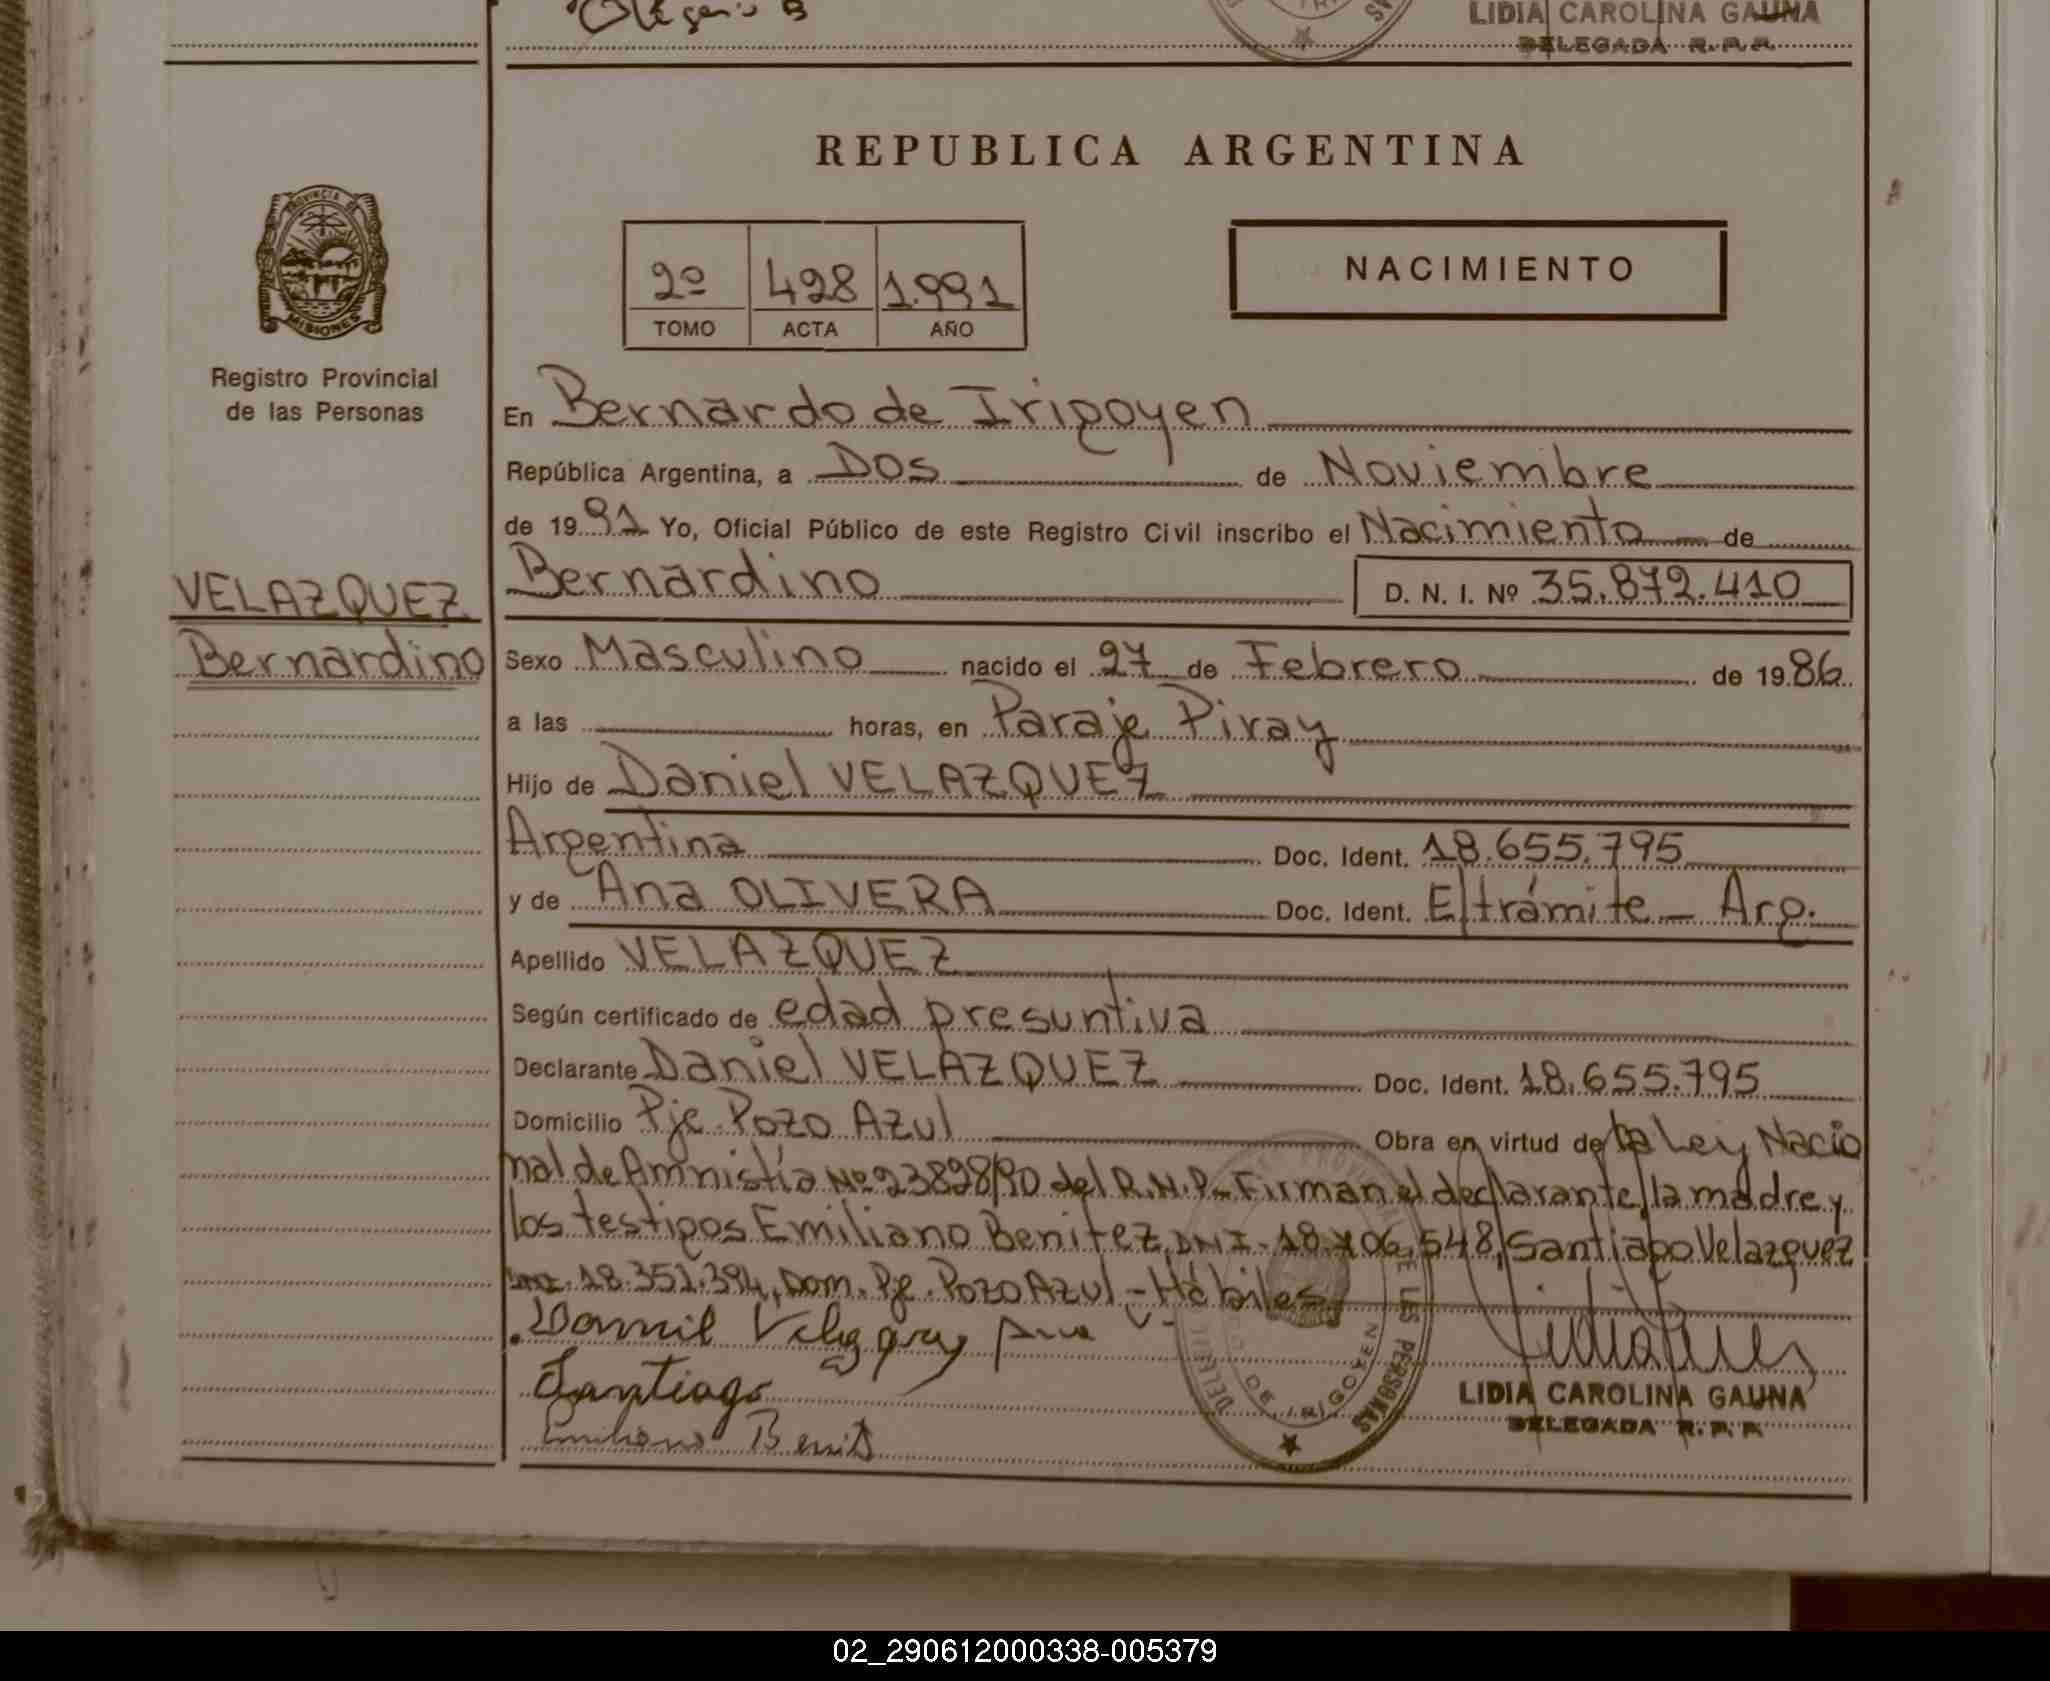 LIDIA CAROLINA GAUNA
DELEGADA R. P. P.
REPUBLICA ARGENTINA
PROVINCIA DE
MISIONES
Registro Provincial
de las Personas
2º 428 1.991
TOMO ACTA AÑO
NACIMIENTO
En Bernardo de Irigoyen
República Argentina, a Dos de Noviembre
de 1991 Yo, Oficial Público de este Registro Civil inscribo el Nacimiento de
Bernardino D. N. I. Nº 35.872.410
VELAZQUEZ
Bernardino
Sexo Masculino nacido el 27 de Febrero de 1986
a las horas, en Paraje Piray
Hijo de Daniel VELAZQUEZ
Argentina Doc. Ident. 18.655.795
y de Ana OLIVERA Doc. Ident. E/trámite - Arg.
Apellido VELAZQUEZ
Según certificado de edad presuntiva
Declarante Daniel VELAZQUEZ Doc. Ident. 18.655.795
Domicilio Pje. Pozo Azul Obra en virtud de la Ley Nacio
nal de Amnistía Nº 23828/90 del R.N.P.- Firman el declarante, la madre y
los testigos Emiliano Benitez, DNI- 18.706.548, Santiago Velazquez
DNI. 18.351.394, Dom. Pje. Pozo Azul - Hábiles
Santiago
Emiliano
DE LAS PERSONAS
DE IRIGOYEN
LIDIA CAROLINA GAUNA
DELEGADA R. P. P.
02_290612000338-005379